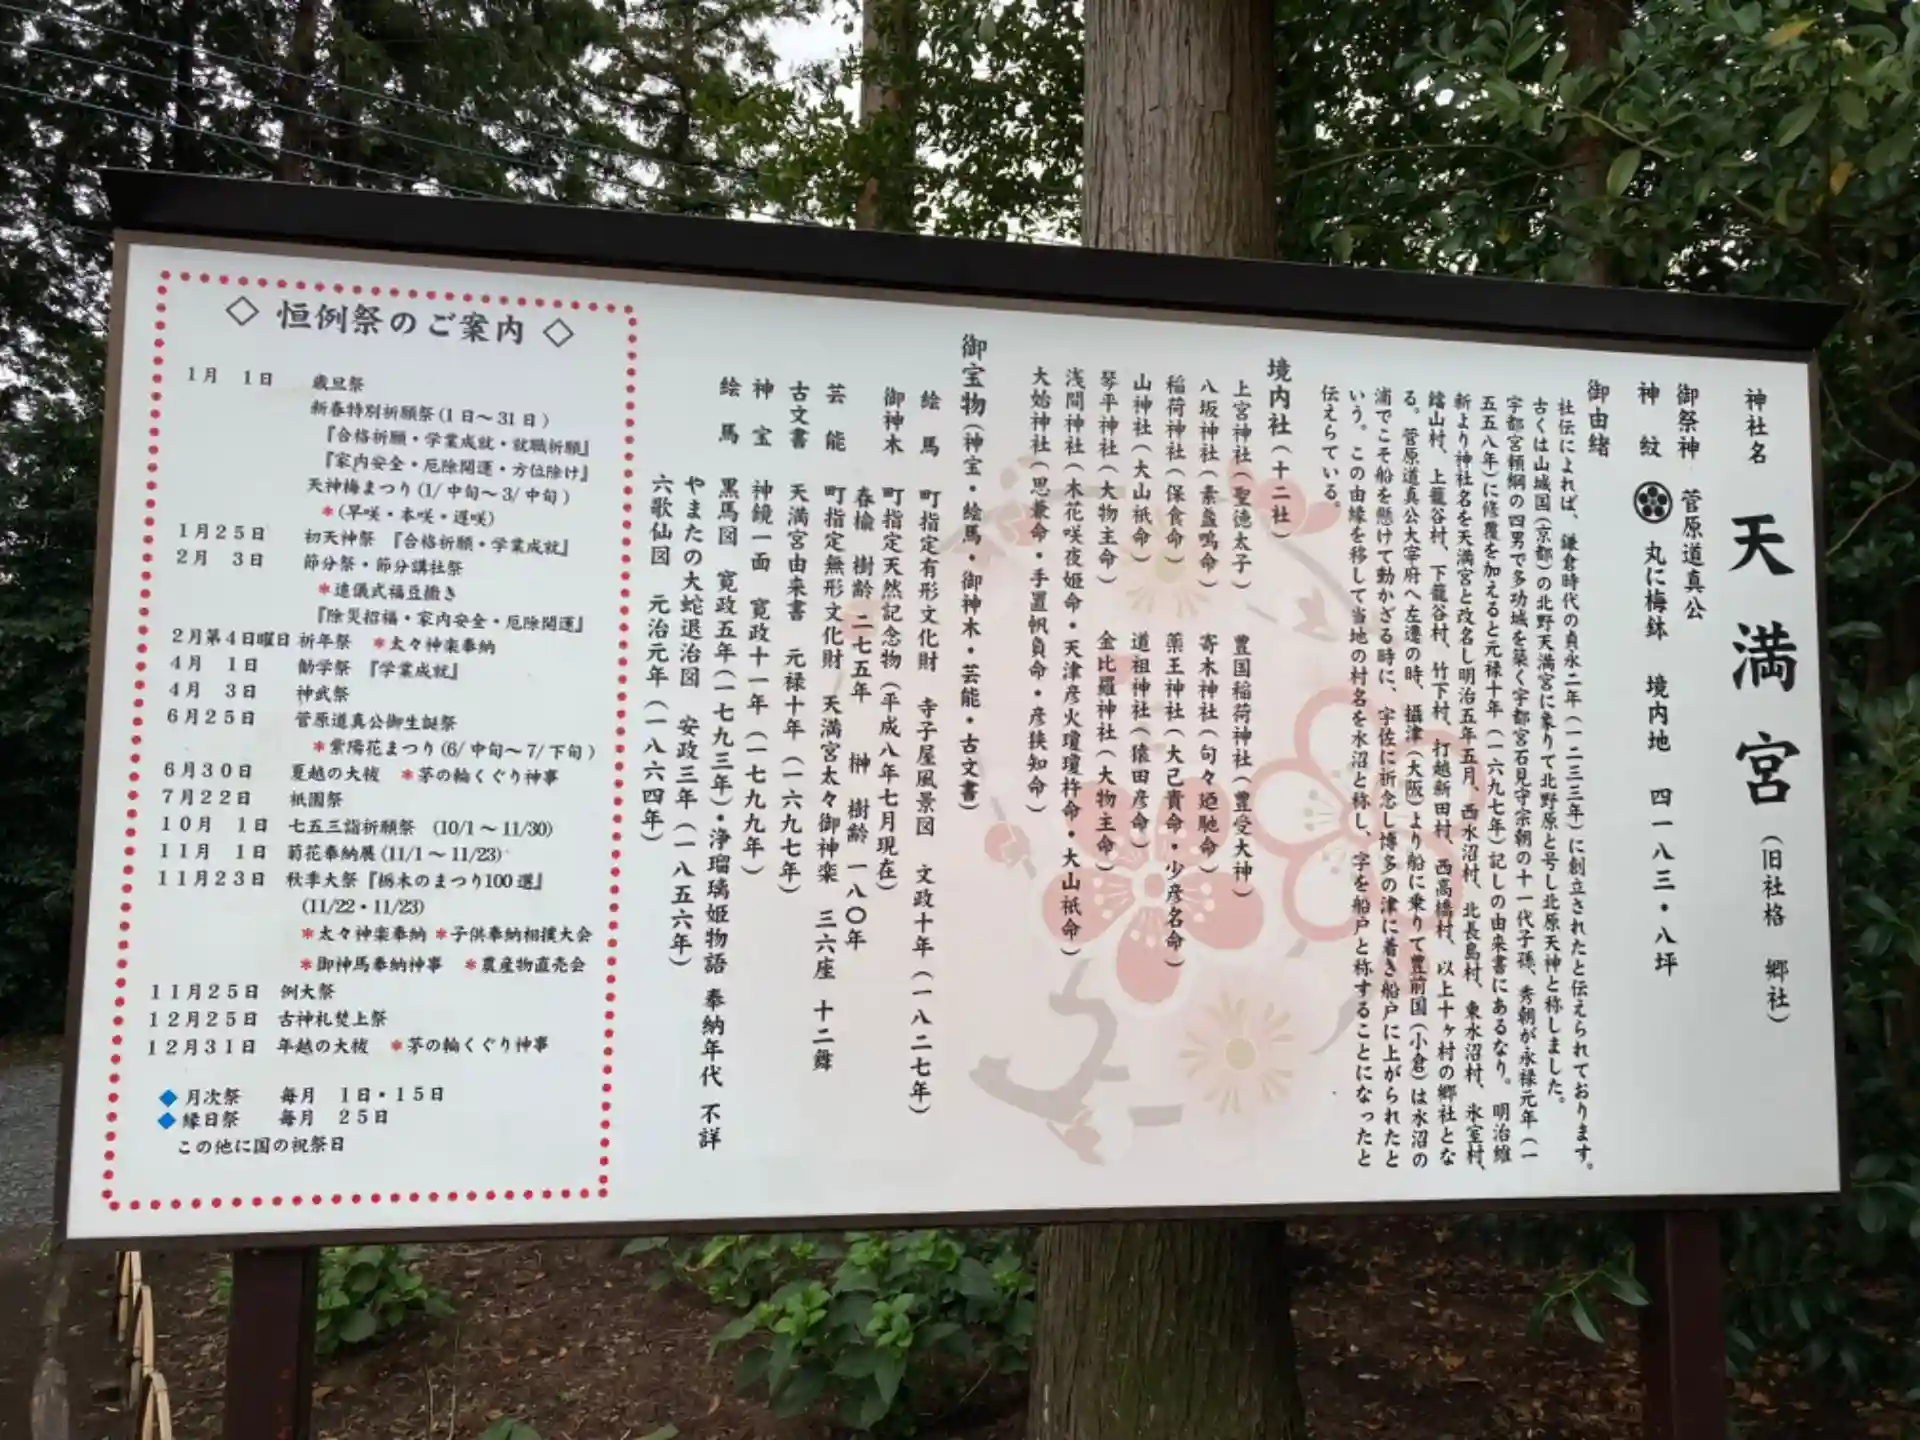 神社名 天満宮（旧社格 郷社）
御祭神 菅原道真公
神紋 丸に梅鉢 境内地 四一八三・八坪
御由緒
社伝によれば、鎌倉時代の貞永二年（一二三三年）に創立されたと伝えられております。
古くは山城国（京都）の北野天満宮に象りて北野原と号し北原天神と称しました。
宇都宮頼綱の四男で多功城を築く宇都宮石見守宗朝の十一代子孫、秀朝が永禄元年（一
五五八年）に修覆を加えると元禄十年（一六九七年）記しの由来書にあるなり。明治維
新より神社名を天満宮と改名し明治五年五月、西水沼村、北長島村、東水沼村、氷室村、
鐺山村、上籠谷村、下籠谷村、竹下村、打越新田村、西高橋村、以上十ヶ村の郷社とな
る。菅原道真公大宰府へ左遷の時、摂津（大阪）より船に乗りて豊前国（小倉）は水沼の
浦でこそ船を懸けて動かざる時に、宇佐に祈念し博多の津に着き船戸に上がられたと
いう。この由縁を移して当地の村名を水沼と称し、字を船戸と称することになったと
伝えらている。
境内社（十二社）
上宮神社（聖徳太子） 豊国稲荷神社（豊受大神）
八坂神社（素盞鳴命） 寄木神社（句々廼馳命）
稲荷神社（保食命） 薬王神社（大己貴命・少彦名命）
山神社（大山祇命） 道祖神社（猿田彦命）
琴平神社（大物主命） 金比羅神社（大物主命）
浅間神社（木花咲夜姫命・天津彦火瓊瓊杵命・大山祇命）
大始神社（思兼命・手置帆負命・彦狭知命）
御宝物（神宝・絵馬・御神木・芸能・古文書）
絵馬 町指定有形文化財 寺子屋風景図 文政十年（一八二七年）
御神木 町指定天然記念物（平成八年七月現在）
春楡 樹齢 二七五年 榊 樹齢 一八〇年
芸能 町指定無形文化財 天満宮太々御神楽 三六座 十二舞
古文書 天満宮由来書 元禄十年（一六九七年）
神宝 神鏡一面 寛政十一年（一七九九年）
絵馬 黒馬図 寛政五年（一七九三年）・浄瑠璃姫物語 奉納年代 不詳
やまたの大蛇退治図 安政三年（一八五六年）
六歌仙図 元治元年（一八六四年）
◇ 恒例祭のご案内 ◇
1月 1日 歳旦祭
新春特別祈願祭(1日〜31日)
『合格祈願・学業成就・就職祈願』
『家内安全・厄除開運・方位除け』
天神梅まつり(1/中旬〜3/中旬)
＊(早咲・本咲・遅咲)
1月25日 初天神祭 『合格祈願・学業成就』
2月 3日 節分祭・節分講社祭
＊追儀式福豆撒き
『除災招福・家内安全・厄除開運』
2月第4日曜日 祈年祭 ＊太々神楽奉納
4月 1日 勧学祭 『学業成就』
4月 3日 神武祭
6月25日 菅原道真公御生誕祭
＊紫陽花まつり(6/中旬〜7/下旬)
6月30日 夏越の大祓 ＊茅の輪くぐり神事
7月22日 祇園祭
10月 1日 七五三詣祈願祭 (10/1〜11/30)
11月 1日 菊花奉納展(11/1〜11/23)
11月23日 秋季大祭『栃木のまつり100選』
(11/22・11/23)
＊太々神楽奉納 ＊子供奉納相撲大会
＊御神馬奉納神事 ＊農産物直売会
11月25日 例大祭
12月25日 古神札焚上祭
12月31日 年越の大祓 ＊茅の輪くぐり神事
◆ 月次祭 毎月 1日・15日
◆ 縁日祭 毎月 25日
この他に国の祝祭日